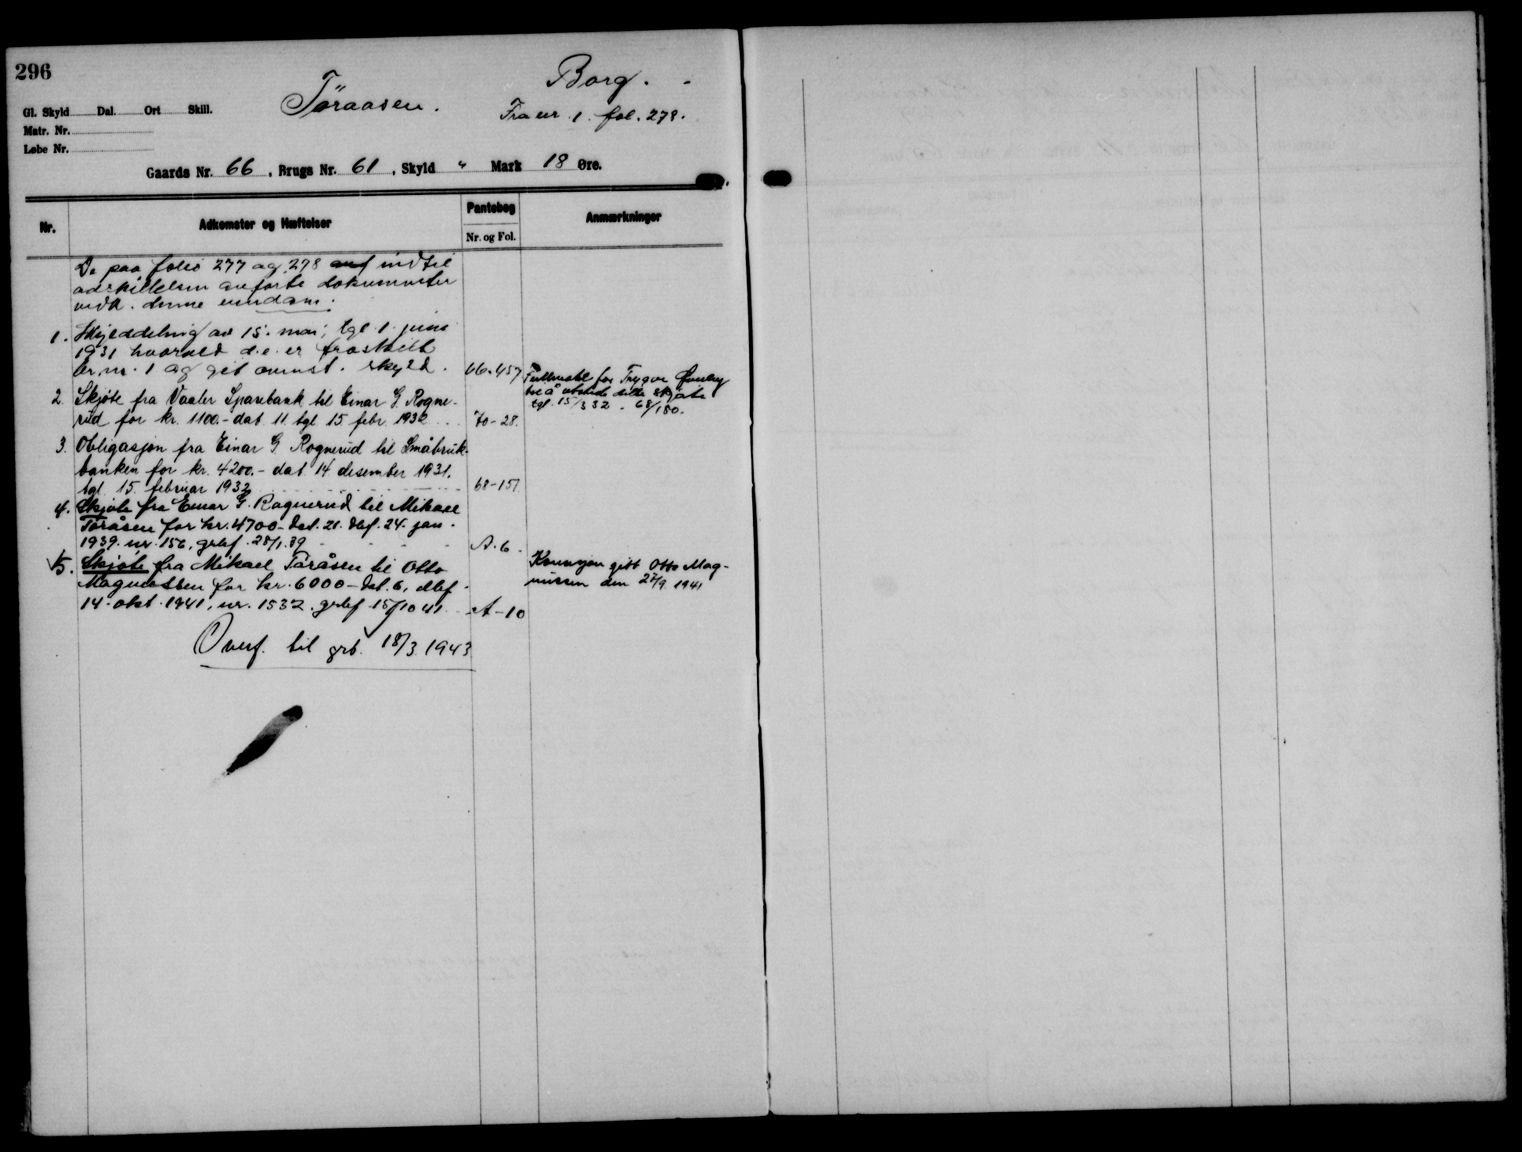 296
Borg.
Töraasen.
Fra nr. 1. fol. 278.
Gl. Skyld Dal. Ort Skill.
Matr. Nr.
Løbe Nr.
Gaards Nr. 66, Brugs Nr. 61, Skyld " Mark 18 Øre.
Nr.
Adkomster og Hæftelser
Pantebog
Nr. og Fol.
Anmærkninger
De paa folio 277 og 278 indtil
adskillelsen anførte dokumenter
vedk. denne eiendom.
1. Skylddeling av 15. mai, tgl. 1. juni
1931 hvorved d.e. er fraskilt
br.nr. 1 og git ovenst. skyld. 66-457
2. Skjøte fra Vaaler Sparebank til Einar G. Rogne-
rud for kr. 1100.- dat. 11. tgl. 15 febr. 1932 70-28.
Fullmakt for Trygve
til å utstede dette skjøte
tgl. 15/3 32 - 68/180.
3. Obligasjon fra Einar G. Rognerud til Småbruk-
banken for kr. 4200.- dat. 14 desember 1931.
tgl. 15. februar 1932 68-151
4. Skjøte fra Einar G. Rognerud til Mikael
Toråsen for kr. 4700.- dat. 21. dbf. 24. jan.
1939. nr. 156, grbf. 28/1.39 A. 6.
5. Skjøte fra Mikael Toråsen til Otto
Magnussen for kr. 6000.- dat. 6, dbf.
14. okt. 1941, nr. 1532. grbf. 15/10 41 A-10
Konsesjon gitt Otto Mag-
nussen den 27/9. 1941
Overf. til grb. 18/3 1943